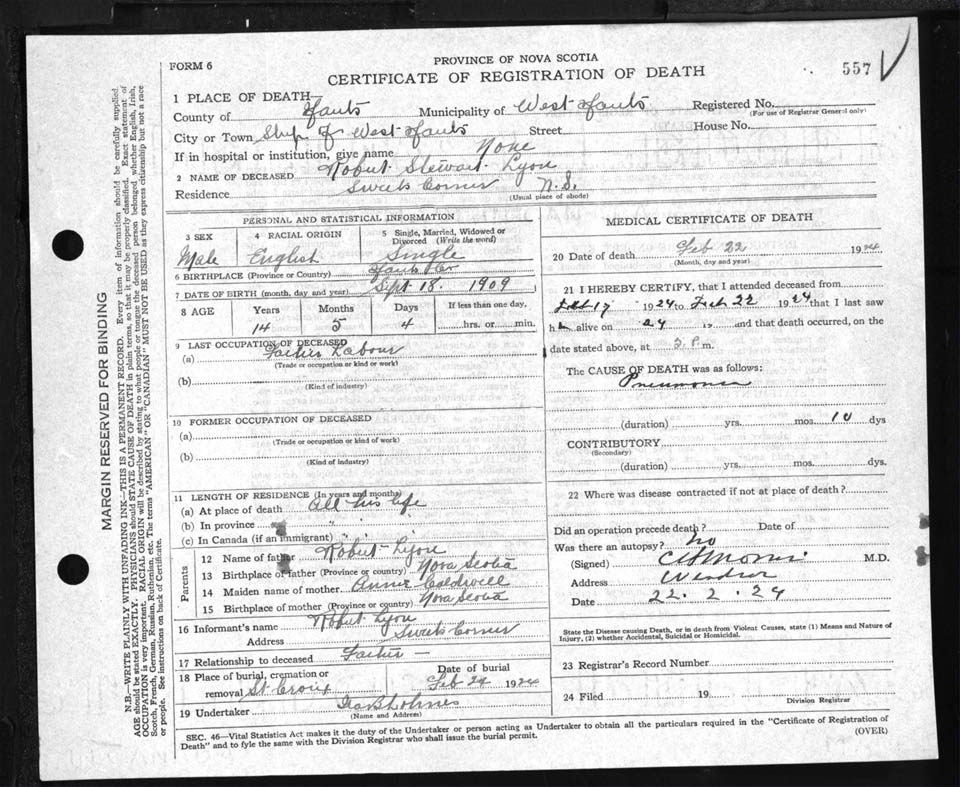 557
FORM 6
PROVINCE OF NOVA SCOTIA
CERTIFICATE OF REGISTRATION OF DEATH
1 PLACE OF DEATH—
County of Hants Municipality of West Hants Registered No.
(For use of Registrar General only)
City or Town of West Hants Street House No.
If in hospital or institution, give name None
2 NAME OF DECEASED Robert Stewart Lyon
Residence Sweets Corner N.S.
(Usual place of abode)
PERSONAL AND STATISTICAL INFORMATION
3 SEX 4 RACIAL ORIGIN 5 Single, Married, Widowed or Divorced (Write the word)
Male English Single
6 BIRTHPLACE (Province or Country) Hants Co
7 DATE OF BIRTH (month, day and year) Sept 18. 1909
8 AGE Years Months Days If less than one day,
14 5 4 hrs. or min.
9 LAST OCCUPATION OF DECEASED
(a) Labour
(Trade or occupation or kind or work)
(b)
(Kind of industry)
10 FORMER OCCUPATION OF DECEASED
(a)
(Trade or occupation or kind of work)
(b)
(Kind of industry)
11 LENGTH OF RESIDENCE (In years and months)
(a) At place of death All his life
(b) In province "
(c) In Canada (if an immigrant) " "
Parents
12 Name of father Robert Lyon
13 Birthplace of father (Province or country) Nova Scotia
14 Maiden name of mother Annie Caldwell
15 Birthplace of mother (Province or country) Nova Scotia
16 Informant's name Robert Lyon
Address Sweets Corner
17 Relationship to deceased Father —
18 Place of burial, cremation or Date of burial
removal St Croix Feb 24 1924
19 Undertaker Holmes
(Name and Address)
MEDICAL CERTIFICATE OF DEATH
20 Date of death Feb 22 1924
(Month, day and year)
21 I HEREBY CERTIFY, that I attended deceased from
Feb 17 1924 to Feb 22 1924 that I last saw
h alive on 24 19 and that death occurred, on the
date stated above, at 3 P.m.
The CAUSE OF DEATH was as follows:
Pneumonia
(duration) yrs. mos. 10 dys
CONTRIBUTORY
(Secondary)
(duration) yrs. mos. dys.
22 Where was disease contracted if not at place of death?
Did an operation precede death? Date of
Was there an autopsy? No
(Signed) M.D.
Address Windsor
Date 22. 2. 24
State the Disease causing Death, or in death from Violent Causes, state (1) Means and Nature of
Injury, (2) whether Accidental, Suicidal or Homicidal.
23 Registrar's Record Number
24 Filed 19
Division Registrar
SEC. 46—Vital Statistics Act makes it duty of the Undertaker or person acting as Undertaker to obtain all the particulars required in the "Certificate of Registration of
Death" and to fyle the same with the Division Registrar who shall issue the burial permit. (OVER)
MARGIN RESERVED FOR BINDING
N.B.—WRITE PLAINLY WITH UNFADING INK—THIS IS A PERMANENT RECORD. Every item of information should be carefully supplied.
AGE should be stated EXACTLY. PHYSICIANS should STATE CAUSE OF DEATH in plain terms, so that it may be properly classified. Exact statement of
OCCUPATION is very important. RACIAL ORIGIN will be described by stating to what people or tongue the deceased person belonged whether English, Irish,
Scotch, French, German, Russian, Ruthenian, etc. The terms "AMERICAN" OR "CANADIAN" MUST NOT BE USED as they express citizenship but not a race
or people. See instructions on back of Certificate.